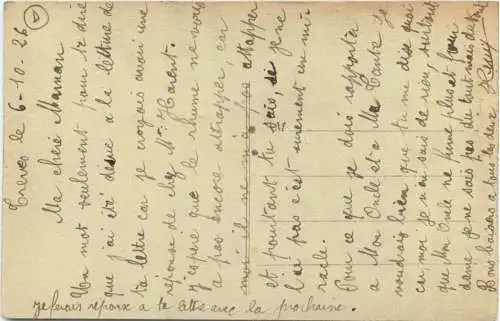 Treves le 6-10-26
Ma chère Maman
Un mot seulement pour te dire
que j'ai été déçue a la lecture de
ta lettre car je croyais avoir une
réponse de chez Mr Harent.
J'espère que le rhume ne vous
a pas encore attrapper, car
moi il ne m'a pas attrapper
et pourtant tu sais, si je ne
l'ai pas c'est surement un mi-
racle.
Pour ce que je dois rapporté
a Mon Oncle et a Ma Tante je
voudrais bien que tu me dise quoi
car moi je n'en sais de rien, surtout
que Mon Oncle ne fume plus et
donc je ne sais pas du tout mais du tout
Bons baisers a tous les deux
je ferais reponse a ta lettre avec la prochaine.